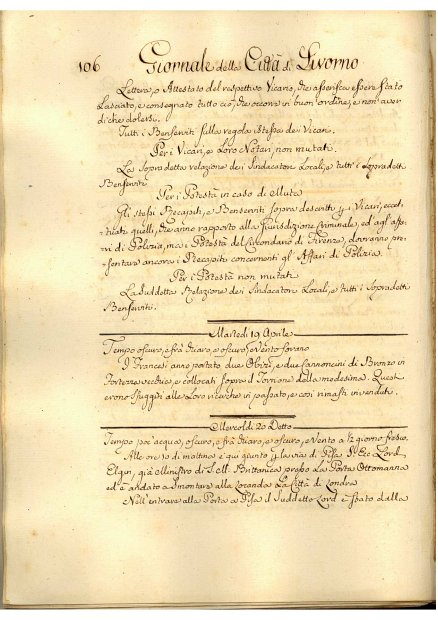 106 Giornale della Città di Livorno
Lettera, o Attestato del respettivo Vicario, che asserisca essere stato
Lasciato, e consegnato tutto ciò, che occorre in buon'ordine, e non aver
di che dolersi.
Tutti i Benserviti sulla regola stessa dei Vicari.
Per i Vicari, e Loro Notari, non mutati.
La Sopradetta relazione dei Sindacatori Locali, e tutti i Sopradetti
Benserviti
Per i Potestà in caso di Muta
Gli stessi Recapiti, e Benserviti sopra descritti p i Vicari, eccet-
tuati quelli, che anno rapporto alla Giurisdizione Criminale, ed agl'affa-
ri di Polizia, ma i Potestà del Circondario di Firenze, dovranno pre-
sentare ancora i Recapiti concernenti gl'Affari di Polizia.
Per i Potestà non mutati
La Suddetta Relazione dei Sindacatori Locali, e tutti i Sopradetti
Benserviti.
Martedì 19 Aprile
Tempo oscuro, e frà chiaro, e oscuro, Vento sovano
I Francesi anno portato due Obizi, e due Cannoncini di Bronzo in
Fortezza vecchia, e collocati sopra il Torrione della medesima. Questi
erono sfuggiti alle Loro ricerche in passato, e così rimasti invenduti.
Mercoldì 20 Detto
Tempo poc'acqua, oscuro, e frà chiaro, e oscuro, e Vento a ½ giorno fresco.
Alle ore 10 di mattina è qui giunto p la via di Pisa S. Ecc Lord
Elgin, già Ministro di S. M. Brittanica presso La Porta Ottomanna
ed è andato a Smontare alla Locanda La Città di Londra
Nell'entrare alla Porta a Pisa il Suddetto Lord è stato dalla